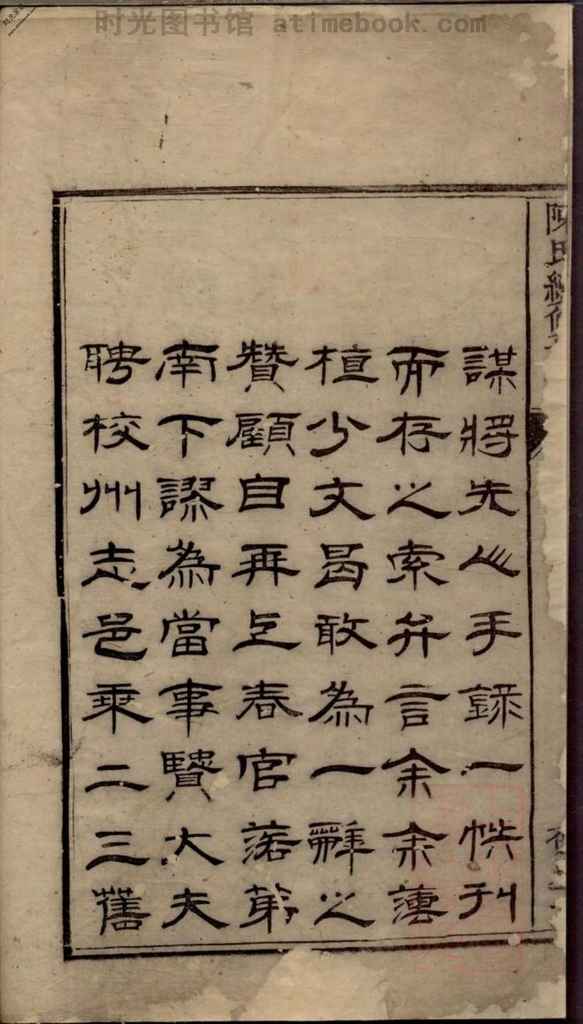 时光图书馆 atimebook.com
謀將先人手錄一帙刊
而存之索弁言余余謹
植少文曷敢為一辭之
贊顧自再上春官落第
南下謬為當事賢大夫
聘校州志邑乘二三舊